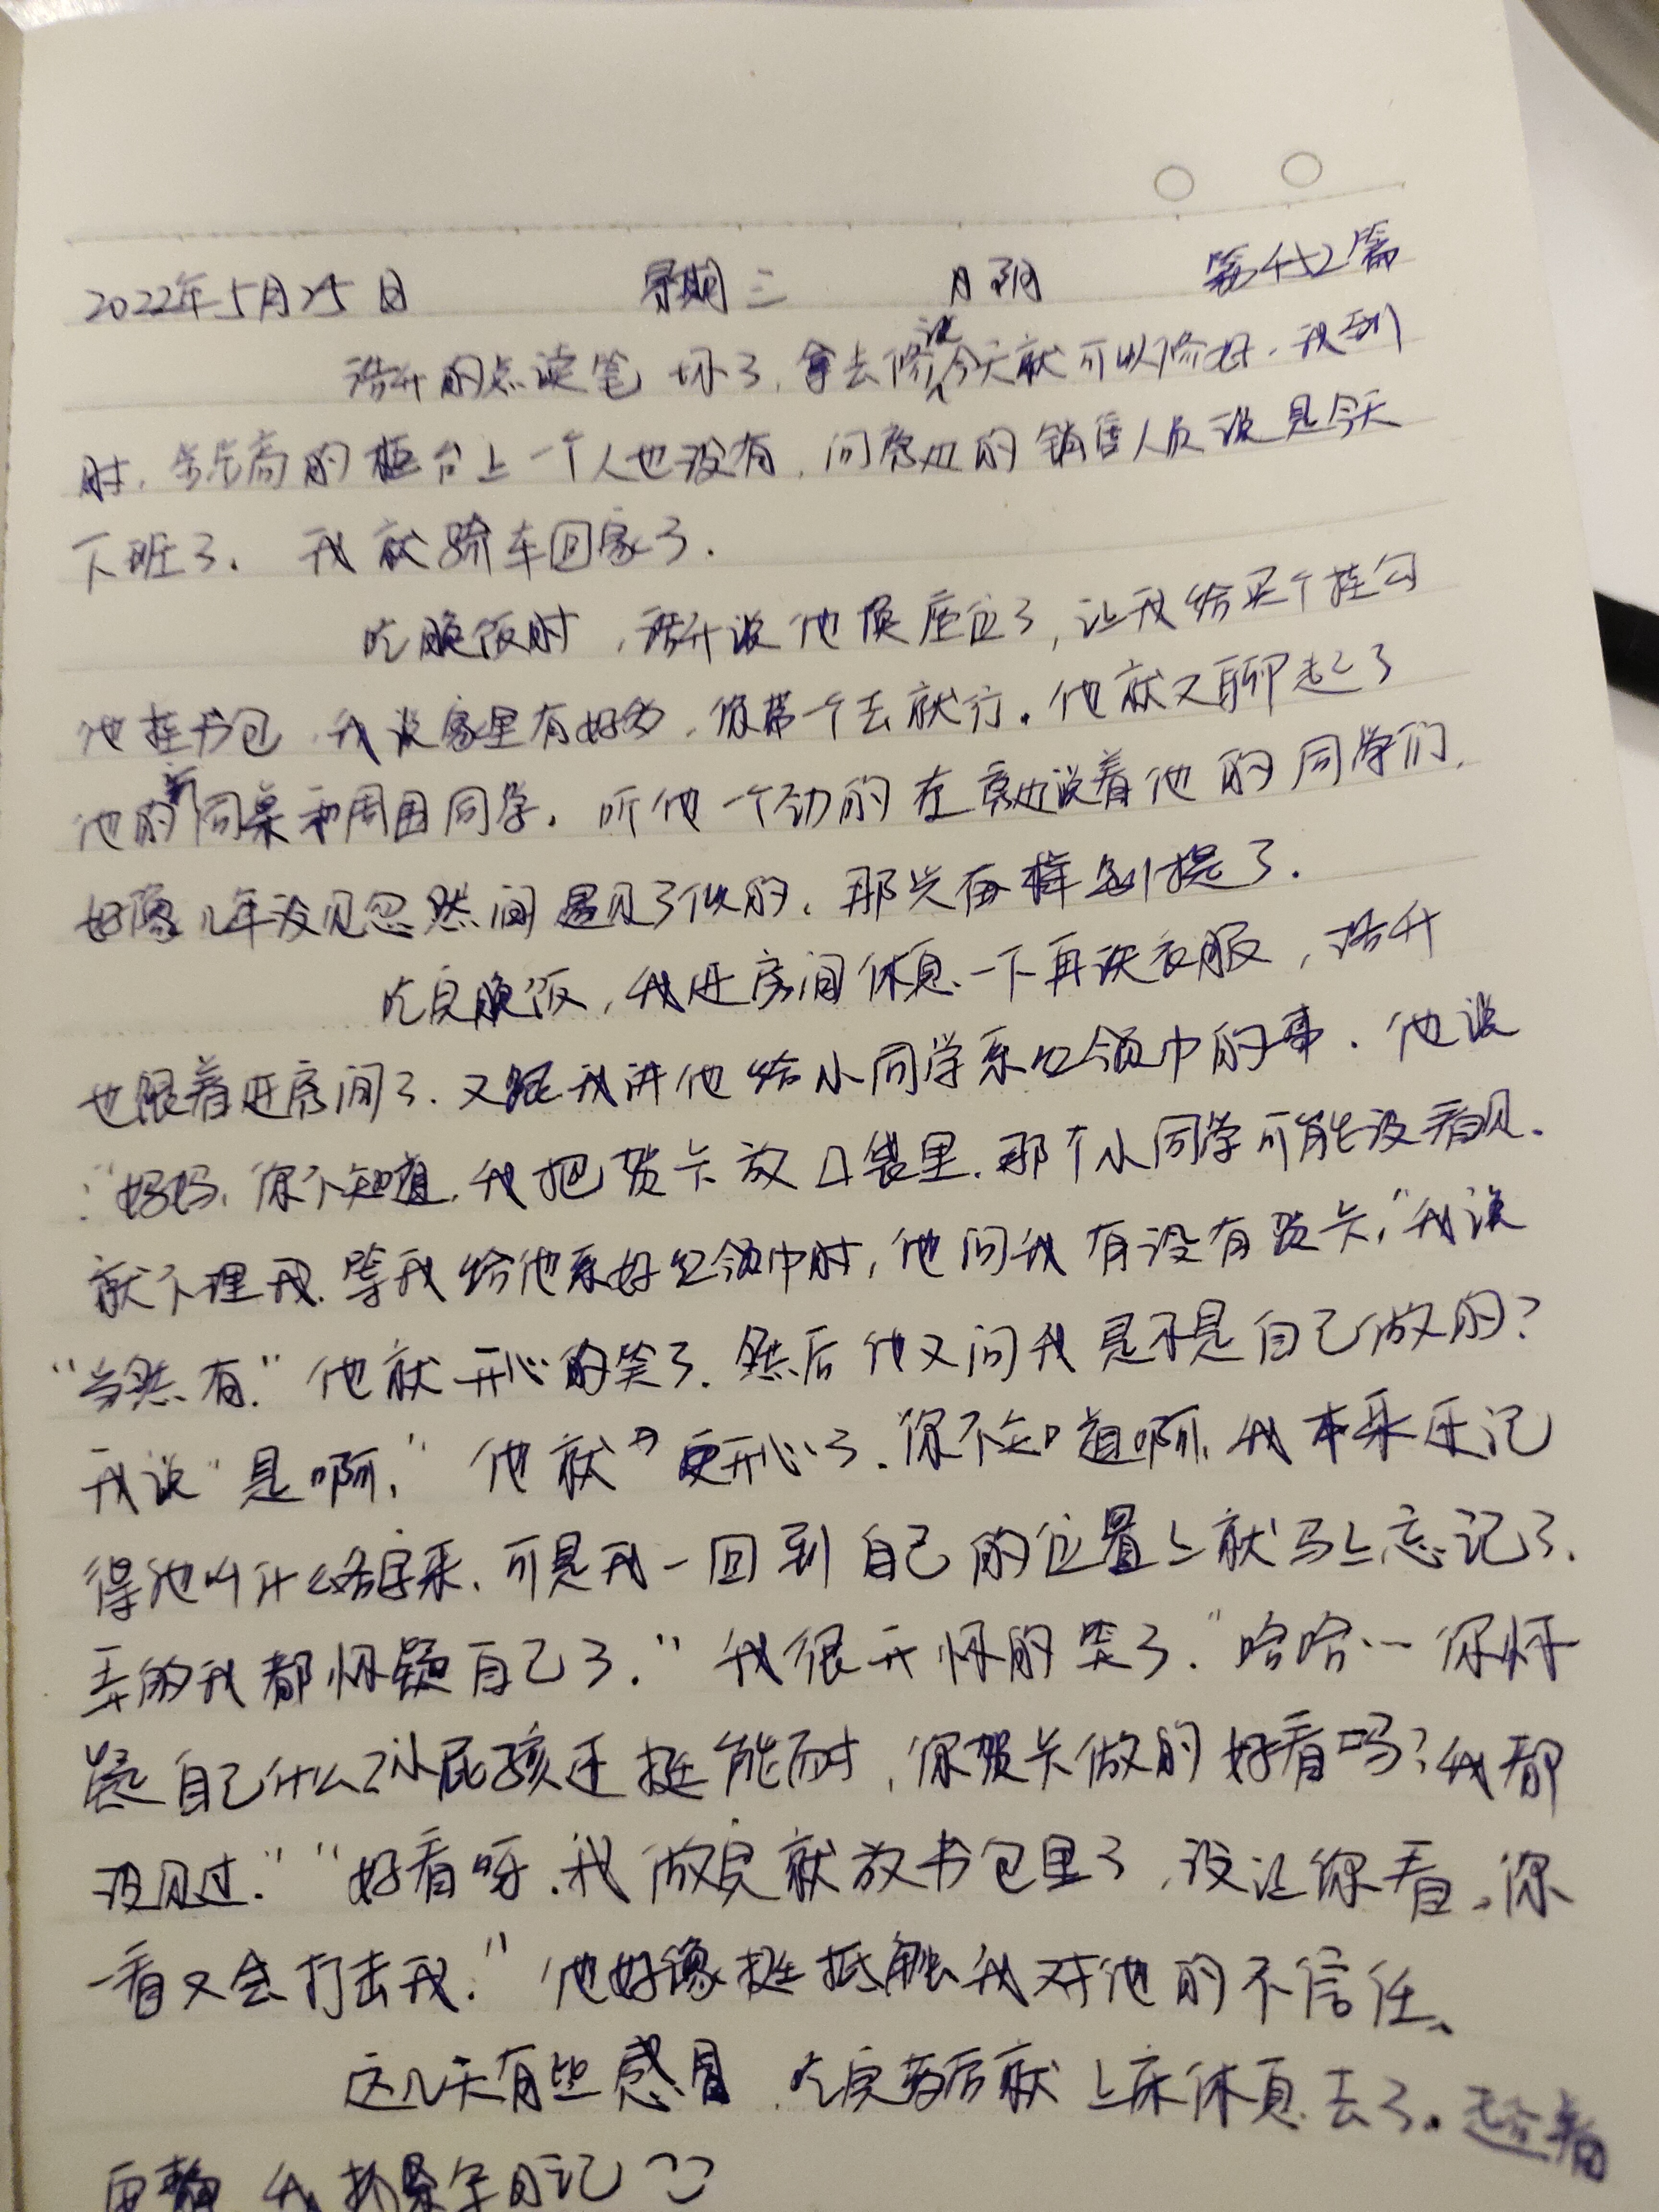 2022年5月25日 星期三 月 第472篇
浩升的点读笔坏了，拿去修说今天就可以修好，我到
时，步步高的柜台上一个人也没有，问旁边的销售人员说是今天
下班了. 我就骑车回家了.
吃晚饭时，浩升说他换座位了，让我给买个挂勾
他挂书包，我说家里有好多，你带一个去就行。他就又聊起了
他的新同桌和周围同学。听他一个劲的在旁边说着他的同学们，
好像几年没见忽然间遇见了似的，那兴奋样别提了.
吃完晚饭，我进房间休息一下再洗衣服，浩升
也跟着进房间了.又跟我讲他给小同学系红领巾的事.他说
:"妈妈，你不知道，我把贺卡放口袋里，那个小同学可能没看见.
就不理我.等我给他系好红领巾时，他问我有没有贺卡，"我说
"当然有."他就开心的笑了.然后他又问我是不是自己做的?
我说"是啊，"他就更开心了.你不知道啊，我本来还记
得他叫什么名字来，可是我一回到自己的位置上就马上忘记了.
弄的我都怀疑自己了."我很开怀的笑了."哈哈…你怀
疑自己什么?小屁孩还挺能耐，你贺卡做的好看吗?我都
没见过.""好看呀.我做完就放书包里了，没让你看。你
一看又会打击我."他好像挺抵触我对他的不信任、
这几天有些感冒，吃完药后就上床休息去了。趁着
安静，我抓紧写日记